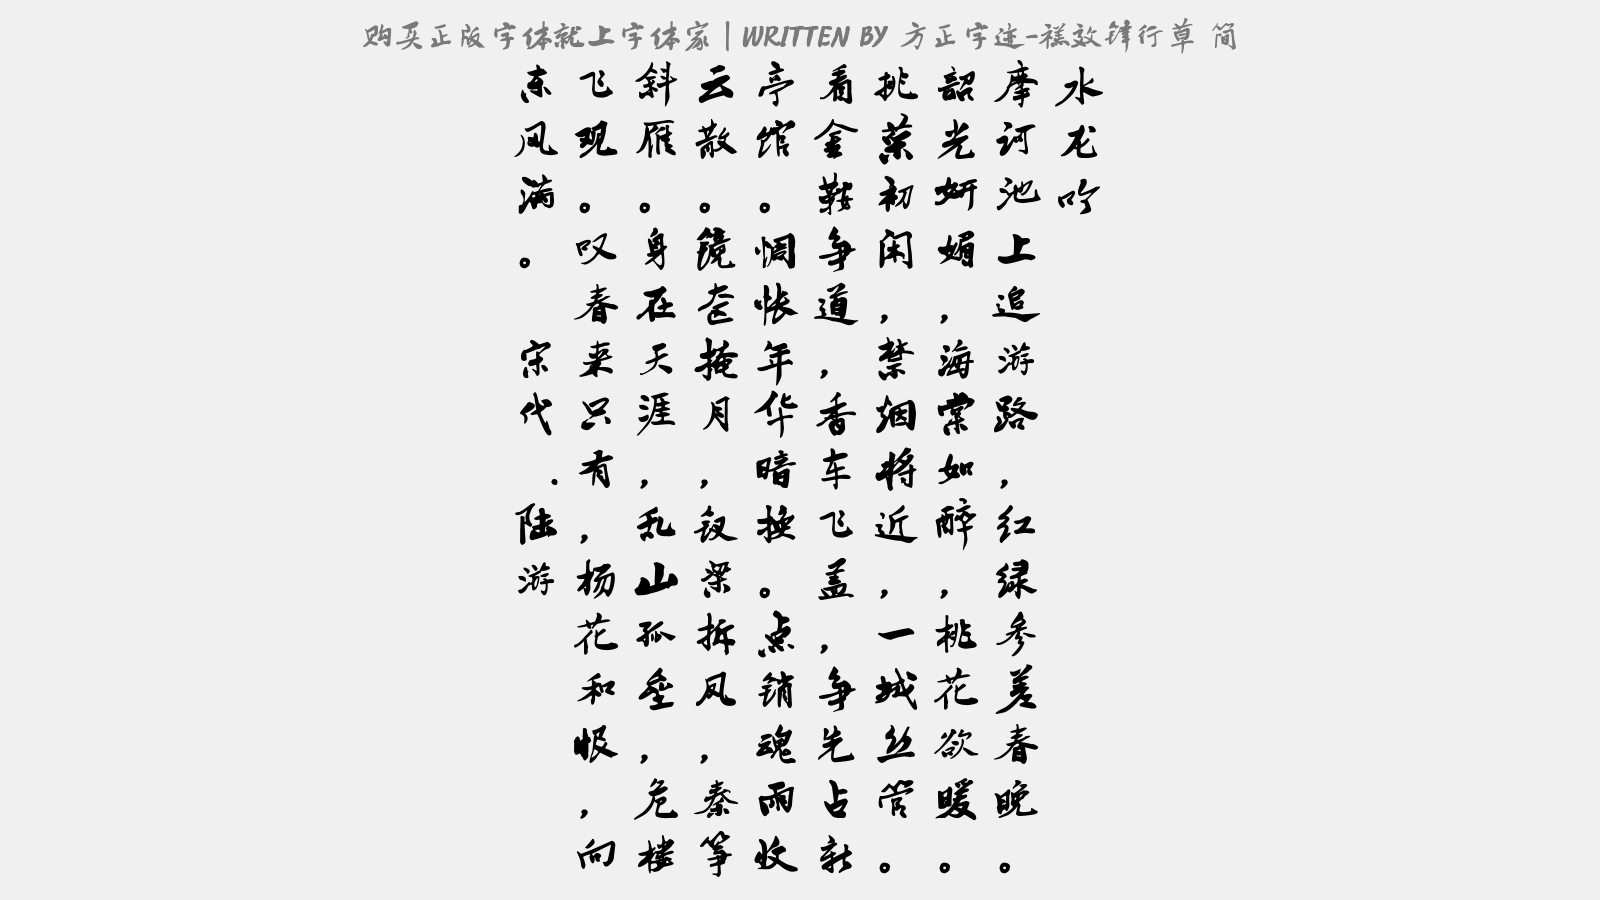 购买正版字体就上字体家 | WRITTEN BY 方正字迹-禚效锋行草 简
水龙吟
摩诃池上追游路，红绿参差春晚。
韶光妍媚，海棠如醉，桃花欲暖。
挑菜初闲，禁烟将近，一城丝管。
看金鞍争道，香车飞盖，争先占新
亭馆。惆怅年华暗换。点销魂雨收
云散。镜奁掩月，钗梁拆凤，秦筝
斜雁。身在天涯，乱山孤垒，危楼
飞观。叹春来只有，杨花和恨，向
东风满。 宋代.陆游